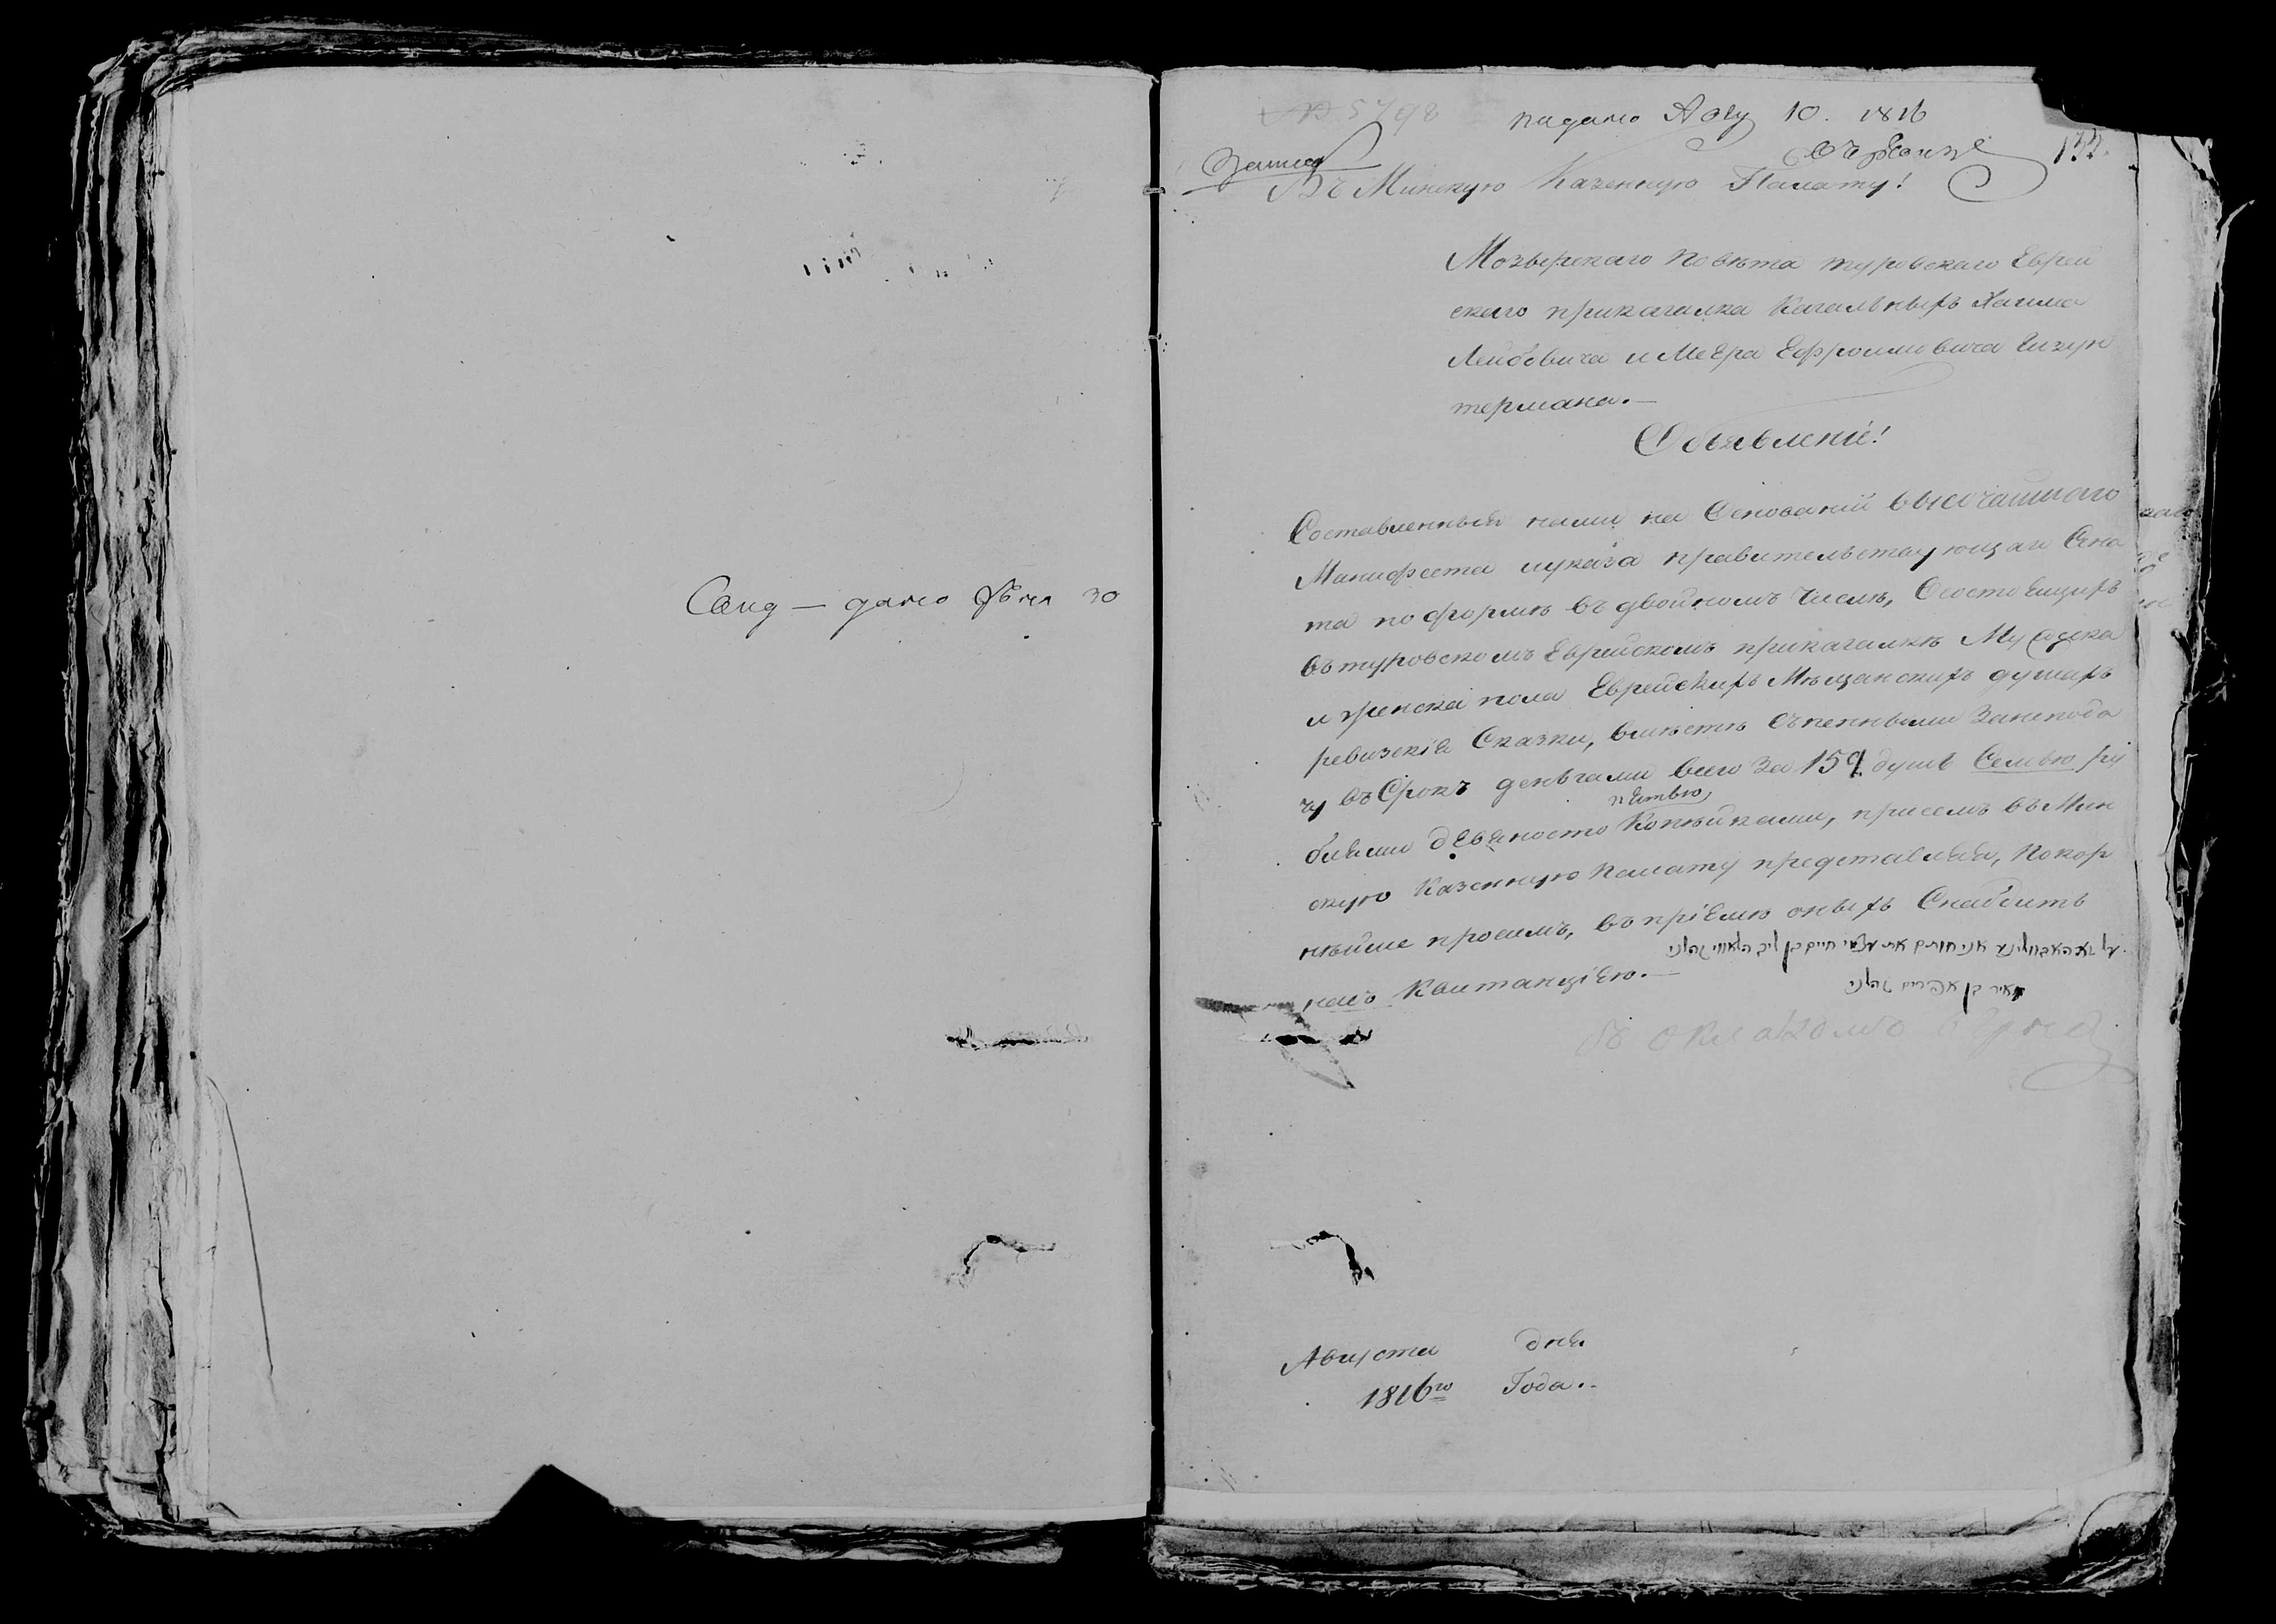 № 5798
подано Авгу 10. 1816
133.
Въ Минскую Казенную Палату!
Мозырскаго повѣта туровскаго Еврей
скаго прикагалка Кагальныхъ Хаима
Лейбовича и Меера Ефроимовича
термана.—
Объявленіе!
Составленныя нами на Основаніи высочайшаго
Манифеста и указа правительствующаго Сена
та по формѣ въ двойномъ числѣ, Состоящихъ
въ туровскомъ Еврейскомъ прикагалкѣ Мужеска
и женска пола Еврейскихъ Мѣщанскихъ душахъ
ревизскія Сказки, вмѣстѣ съ пенными за непода
чу въ Срокъ деньгами всего за 159 душъ Семью ру
пятью
блями девяносто Копѣйками, присемъ въ Мин
скую Казенную Палату представляя, покор
нѣйше просимъ, въ пріемѣ оныхъ Снабдить
насъ Квитанціею.—
אני חותם את עצמי חיים בן ליב
מאיר בן אפרים
Августа дня
1816го Года.
дано 30